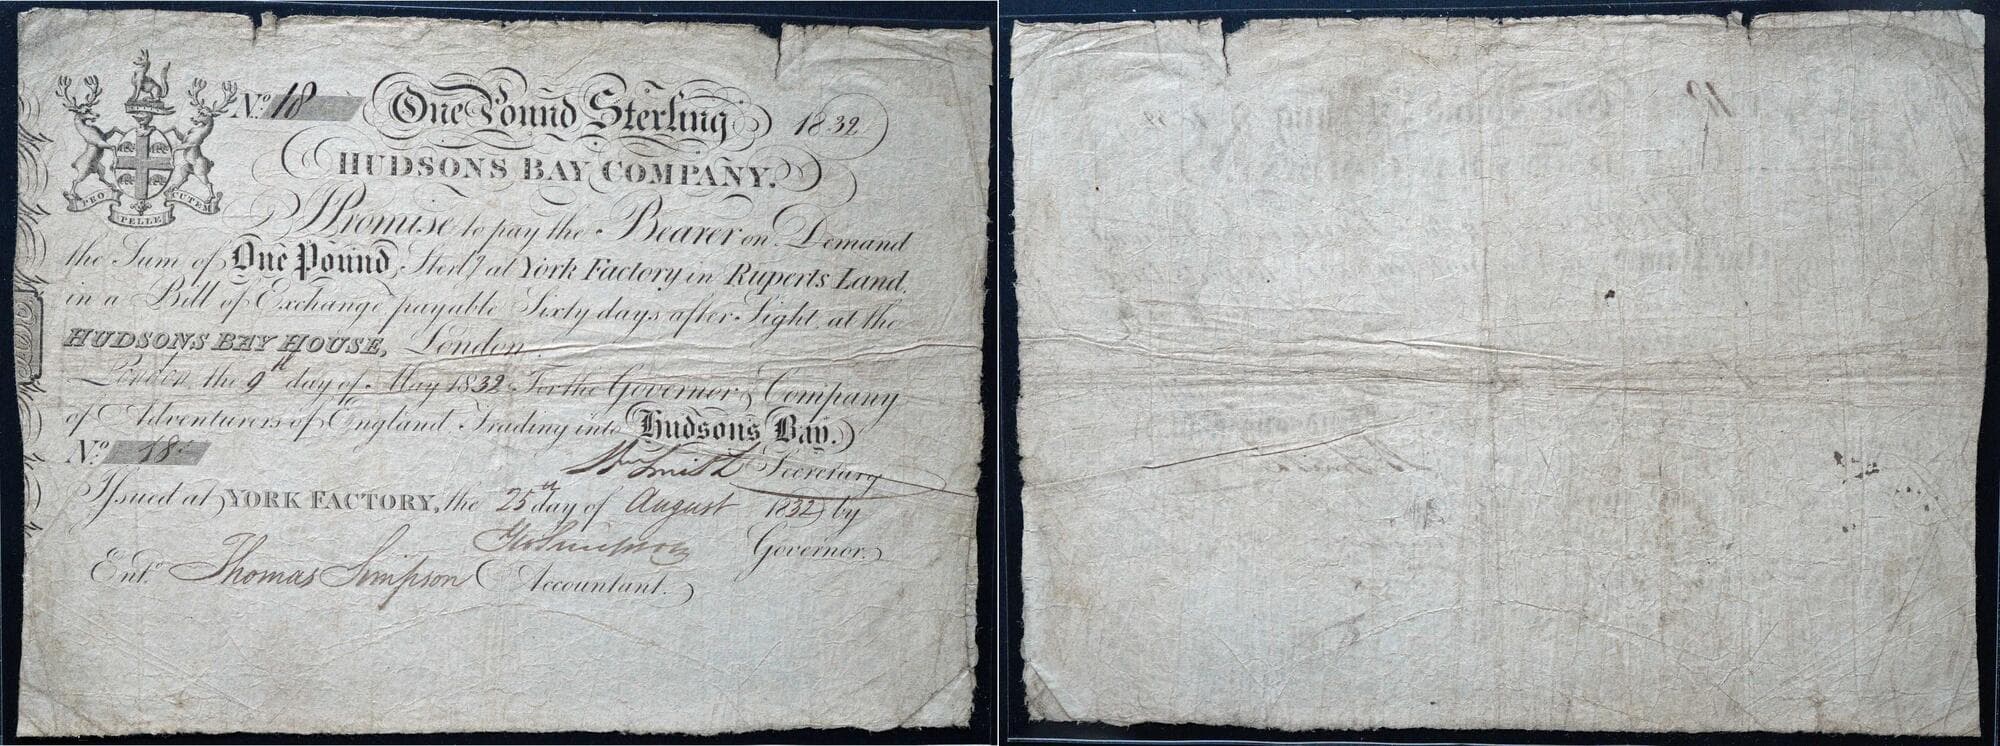 No. 18 One Pound Sterling 1832
HUDSONS BAY COMPANY.
PRO PELLE CUTEM
I Promise to pay the Bearer on Demand
the Sum of One Pound Sterlg. at York Factory in Ruperts Land,
in a Bill of Exchange payable Sixty days after Sight, at the
HUDSONS BAY HOUSE, London.
London the 9th day of May 1832 For the Governor & Company
of Adventurers of England Trading into Hudsons Bay.
No. 18. Wm Smith Secretary
Issued at YORK FACTORY, the 25th day of August 1832 by
Geo Simpson Governor.
Ent. Thomas Simpson Accountant.